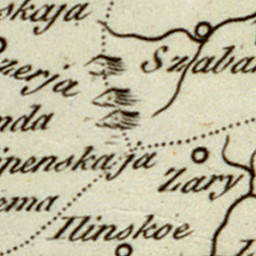 skaja
Szaba
zerja
nda
ipenskaja
Zary
ema
Ilinskoe